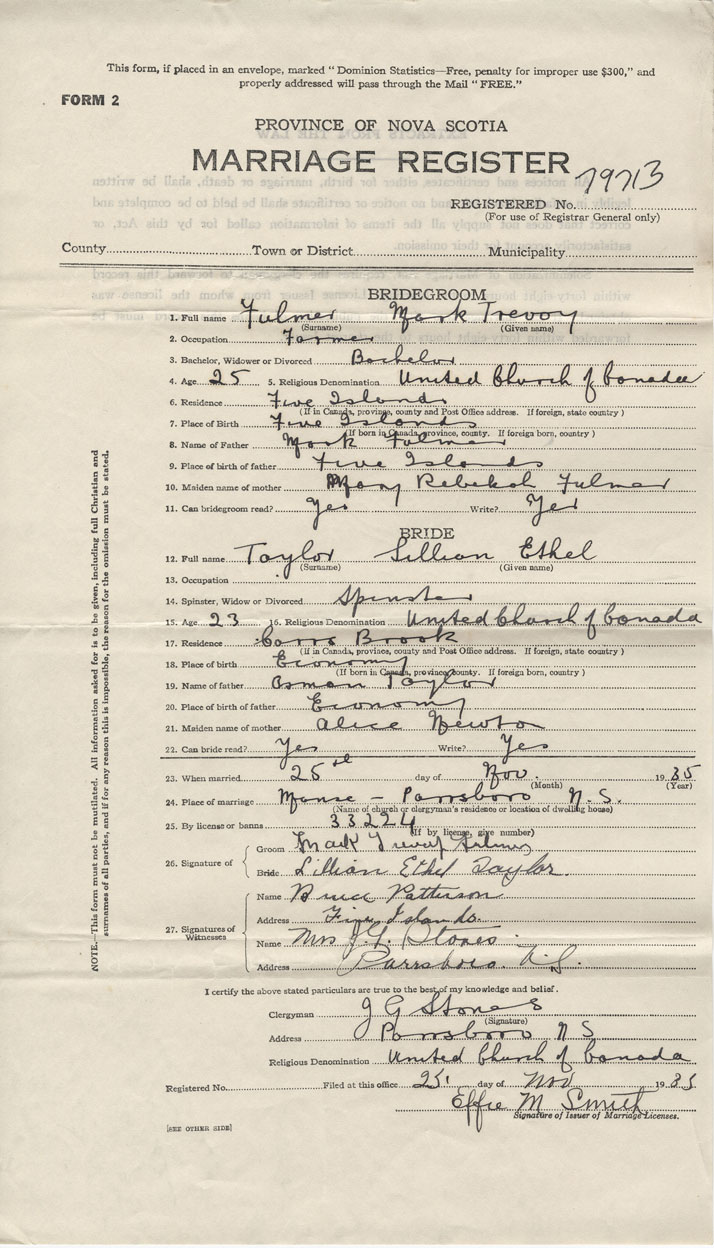 This form, if placed in an envelope, marked "Dominion Statistics—Free, penalty for improper use $300," and
properly addressed will pass through the Mail "FREE."
FORM 2
PROVINCE OF NOVA SCOTIA
MARRIAGE REGISTER
79713
REGISTERED No.
(For use of Registrar General only)
County Town or District Municipality
BRIDEGROOM
1. Full name Fulmer Mark Trevoy
(Surname) (Given name)
2. Occupation Farmer
3. Bachelor, Widower or Divorced Bachelor
4. Age 25 5. Religious Denomination United Church of Canada
6. Residence Five Islands
(If in Canada, province, county and Post Office address. If foreign, state country)
7. Place of Birth Five Islands
(If born in Canada, province, county. If foreign born, country)
8. Name of Father Mark Fulmer
9. Place of birth of father Five Islands
10. Maiden name of mother Mary Rebekah Fulmer
11. Can bridegroom read? Yes Write? Yes
BRIDE
12. Full name Taylor Lillian Ethel
(Surname) (Given name)
13. Occupation
14. Spinster, Widow or Divorced Spinster
15. Age 23 16. Religious Denomination United Church of Canada
17. Residence Carrs Brook
(If in Canada, province, county and Post Office address. If foreign, state country)
18. Place of birth Economy
(If born in Canada, province, county. If foreign born, country)
19. Name of father Osman Taylor
20. Place of birth of father Economy
21. Maiden name of mother Alice Newton
22. Can bride read? Yes Write? Yes
23. When married 25 day of Nov. 1935
(Month) (Year)
24. Place of marriage Manse - Parrsboro N.S.
(Name of church or clergyman's residence or location of dwelling house)
25. By license or banns 33224
(If by license, give number)
26. Signature of
Groom Mark Trevoy Fulmer
Bride Lillian Ethel Taylor.
27. Signatures of Witnesses
Name Bruce Patterson
Address Five Islands.
Name Mrs J.G. Stones.
Address Parrsboro. N.S.
I certify the above stated particulars are true to the best of my knowledge and belief.
Clergyman J G Stones
(Signature)
Address Parrsboro N S
Religious Denomination United Church of Canada
Registered No. Filed at this office 25. day of Nov 1935
Effie M Smith
Signature of Issuer of Marriage Licenses.
[SEE OTHER SIDE]
NOTE.—This form must not be mutilated. All information asked for is to be given, including full Christian and
surnames of all parties, and if for any reason this is impossible, the reason for the omission must be stated.